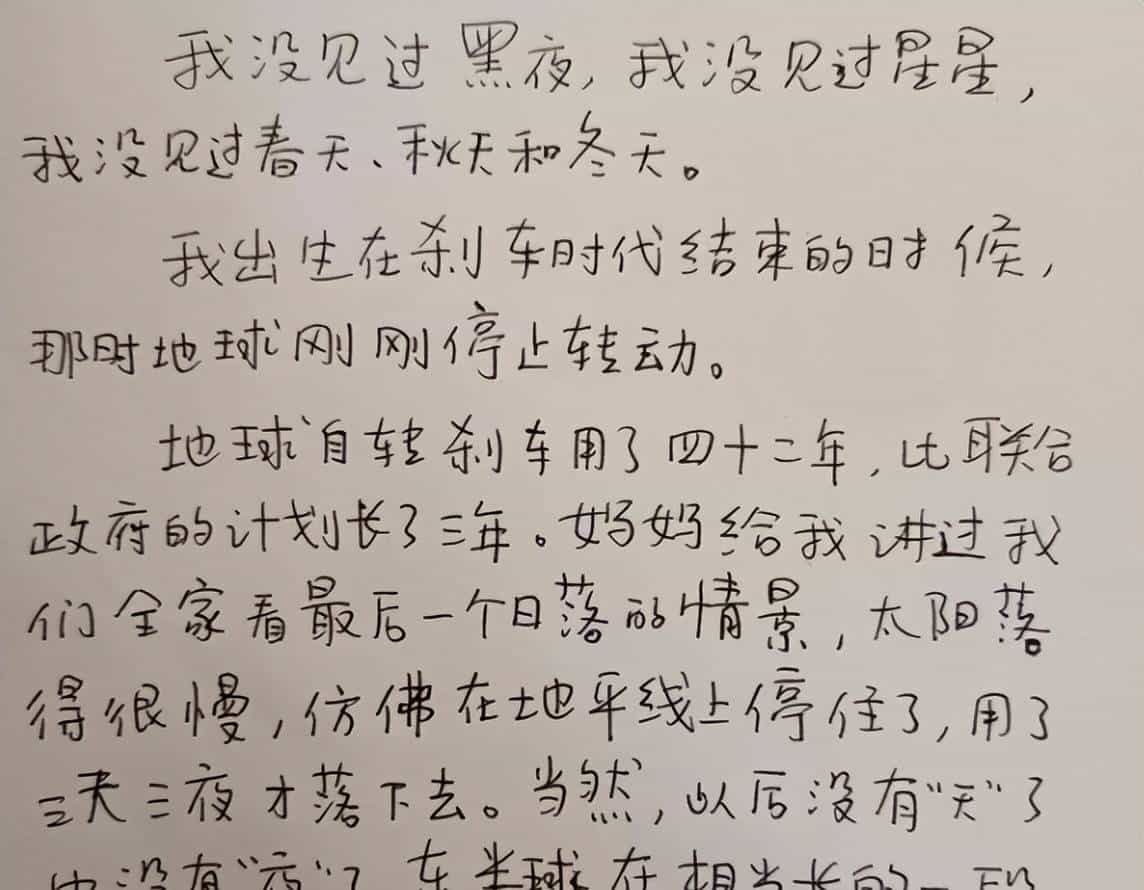 我没见过黑夜,我没见过星星,
我没见过春天、秋天和冬天。
我出生在刹车时代结束的时候,
那时地球刚刚停止转动。
地球自转刹车用了四十二年,比联合
政府的计划长了三年。妈妈给我讲过我
们全家看最后一个日落的情景,太阳落
得很慢,仿佛在地平线上停住了,用了
三天三夜才落下去。当然,以后没有“天”了
也没有“夜”了 东半球在相当长的一段